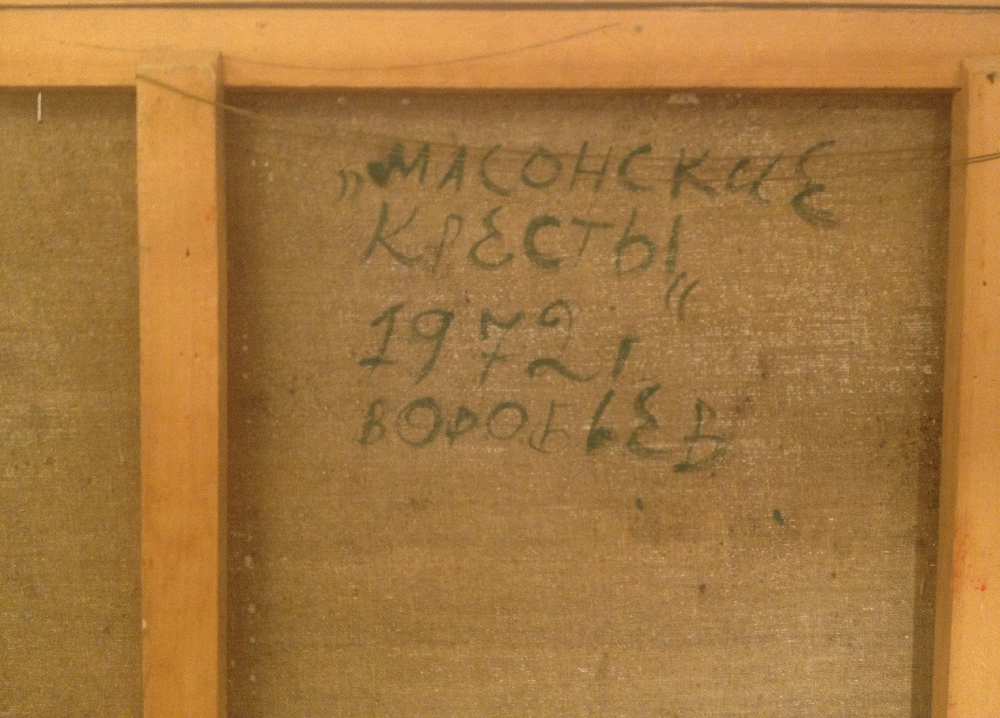 „МАСОНСКИЕ
КРЕСТЫ“
1972 г
ВОРОБЬЕВ